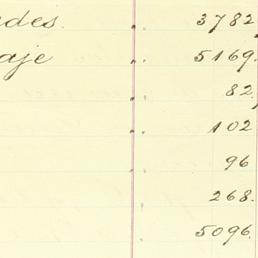 des. 3782
aje 5169.
82.
102
96
268.
5096.